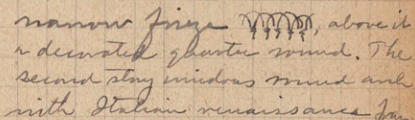 narrow frieze , above it
a decorated quarter round. The
second story windows round arch
with Italian renaissance